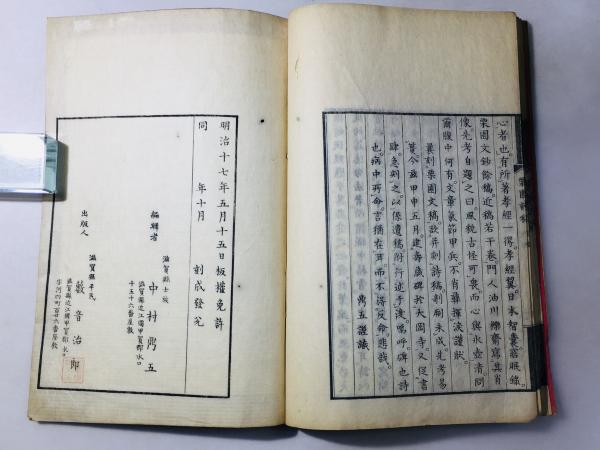 心者也、有所著孝經一得、孝經翼、日本智囊、寤眠錄、
栗園文鈔餘稿、近稿若干卷、門人油川
齋寫其肖
像、先考自題之曰、風貌古怪可
而心與氷壺清、問
爾腹中何有、文章氣節甲兵、不肖
揮淚謹狀、
曩刻栗園文稿、欲并刻詩稿、剞劂未成、先考易
簀、今玆甲申五月、建壽藏碑於大岡寺、又促書
肆、急刻之、以係遺稿、附行述于後、嗚呼碑也詩
也、病中所命、言猶在耳、而不得反命、悲哉、
鼎五謹識
明治十七年五月十五日板權免許
同 年十月 刻成發兌
編輯者
滋賀縣士族
中村鼎五
滋賀縣近江國甲賀郡水口
千五十六番屋敷
出版人
滋賀縣平民
藪音治郎
滋賀縣近江國甲賀郡水口
字河內町百廿六番屋敷